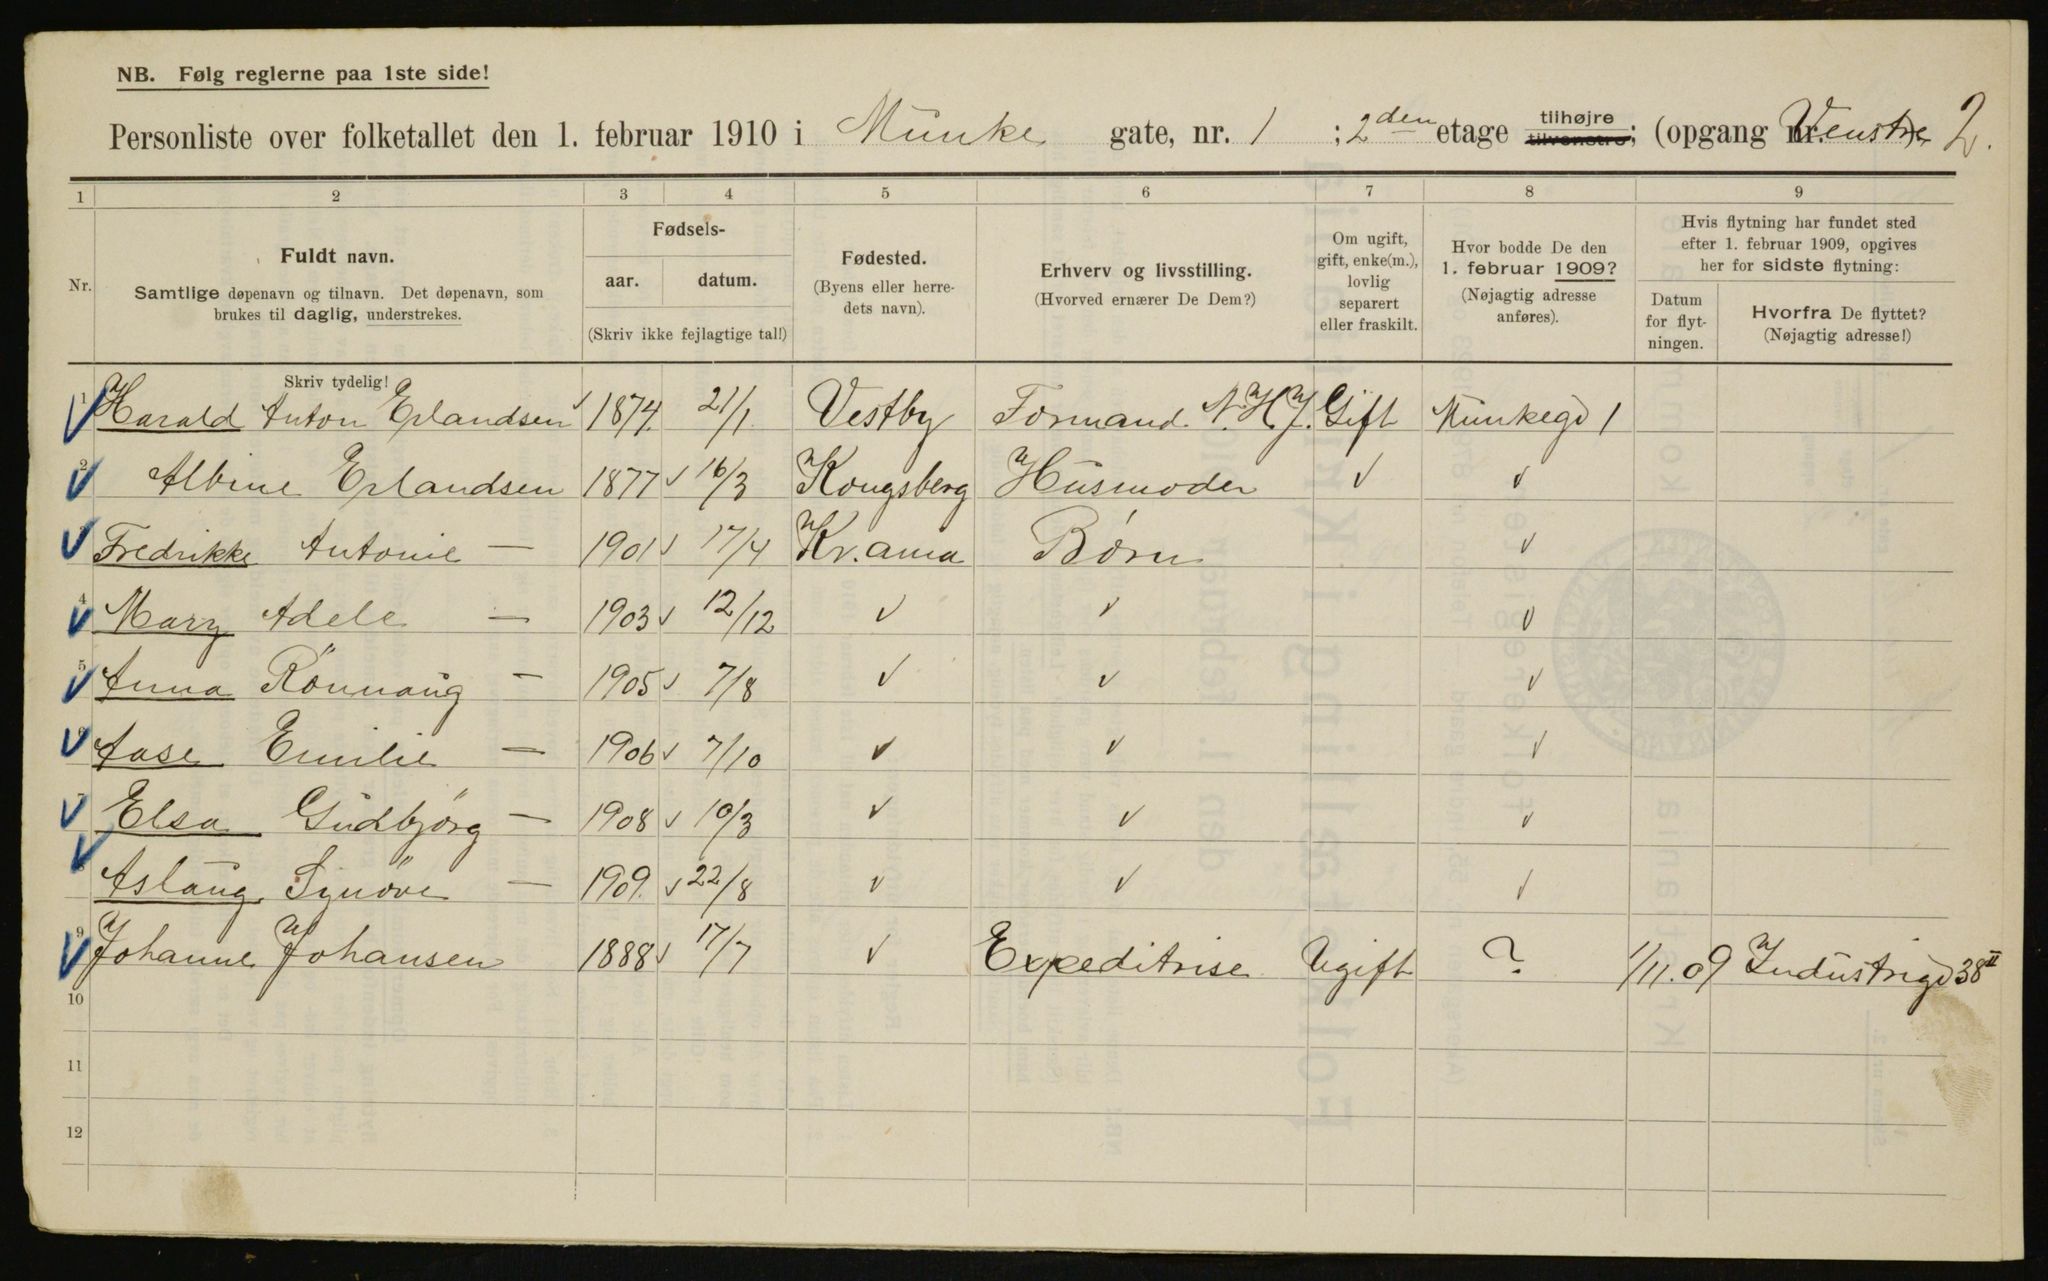 NB. Følg reglerne paa 1ste side!
Personliste over folketallet den 1. februar 1910 i Munke gate, nr. 1 ; 2den etage tilhøjre tilvenstre; (opgang nr. Venstre 2.
1 2 3 4 5 6 7 8 9
Nr.
Fuldt navn.
Samtlige døpenavn og tilnavn. Det døpenavn, som
brukes til daglig, understrekes.
Skriv tydelig!
Fødsels-
aar. datum.
(Skriv ikke fejlagtige tal!)
Fødested.
(Byens eller herre-
dets navn).
Erhverv og livsstilling.
(Hvorved ernærer De Dem?)
Om ugift,
gift, enke(m.),
lovlig
separert
eller fraskilt.
Hvor bodde De den
1. februar 1909?
(Nøjagtig adresse
anføres).
Hvis flytning har fundet sted
efter 1. februar 1909, opgives
her for sidste flytning:
Datum
for flyt-
ningen.
Hvorfra De flyttet?
(Nøjagtig adresse!)
1 Harald Anton Erlandsen 1874. 21/1. Vestby Formand. N.H.J. Gift Munkegd 1
2 Albine Erlandsen 1877 √ 16/3 Kongsberg Husmoder √ √
3 Fredrikke Antonie — 1901 √ 17/4 Kr.ania Børn √
4 Mary Adele — 1903 √ 12/12 √ √ √
5 Anna Rönnaug — 1905 √ 7/8 √ √ √
6 Aase Emilie — 1906 √ 7/10 √ √ √
7 Elsa Gudbjörg — 1908 √ 10/3 √ √ √
8 Aslaug Synöve — 1909. √ 22/8 √ √ √
9 Johanne Johansen 1888 √ 17/7 √ Expeditrise Ugift ? 1/11.09 Industrigd 38 II
10
11
12